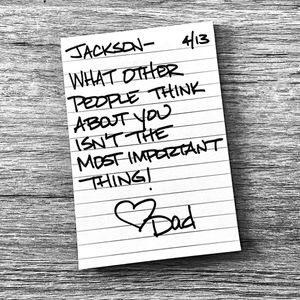 JACKSON- 4/13
WHAT OTHER
PEOPLE THINK
ABOUT YOU
ISN'T THE
MOST IMPORTANT
THING!
Dad